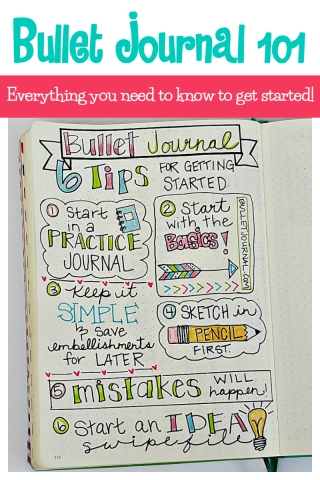 Bullet Journal 101
Everything you need to know to get started!
Bullet Journal
6 Tips FOR GETTING
STARTED
1 Start
in a
PRACTICE
JOURNAL
2 Start
with the
Basics!
BULLETJOURNAL.COM
3 Keep it
SIMPLE
& save
embellishments
for LATER
4 SKETCH in
PENCIL
FIRST.
5 mistakes WILL
happen!
6 Start an IDEA
swipe file